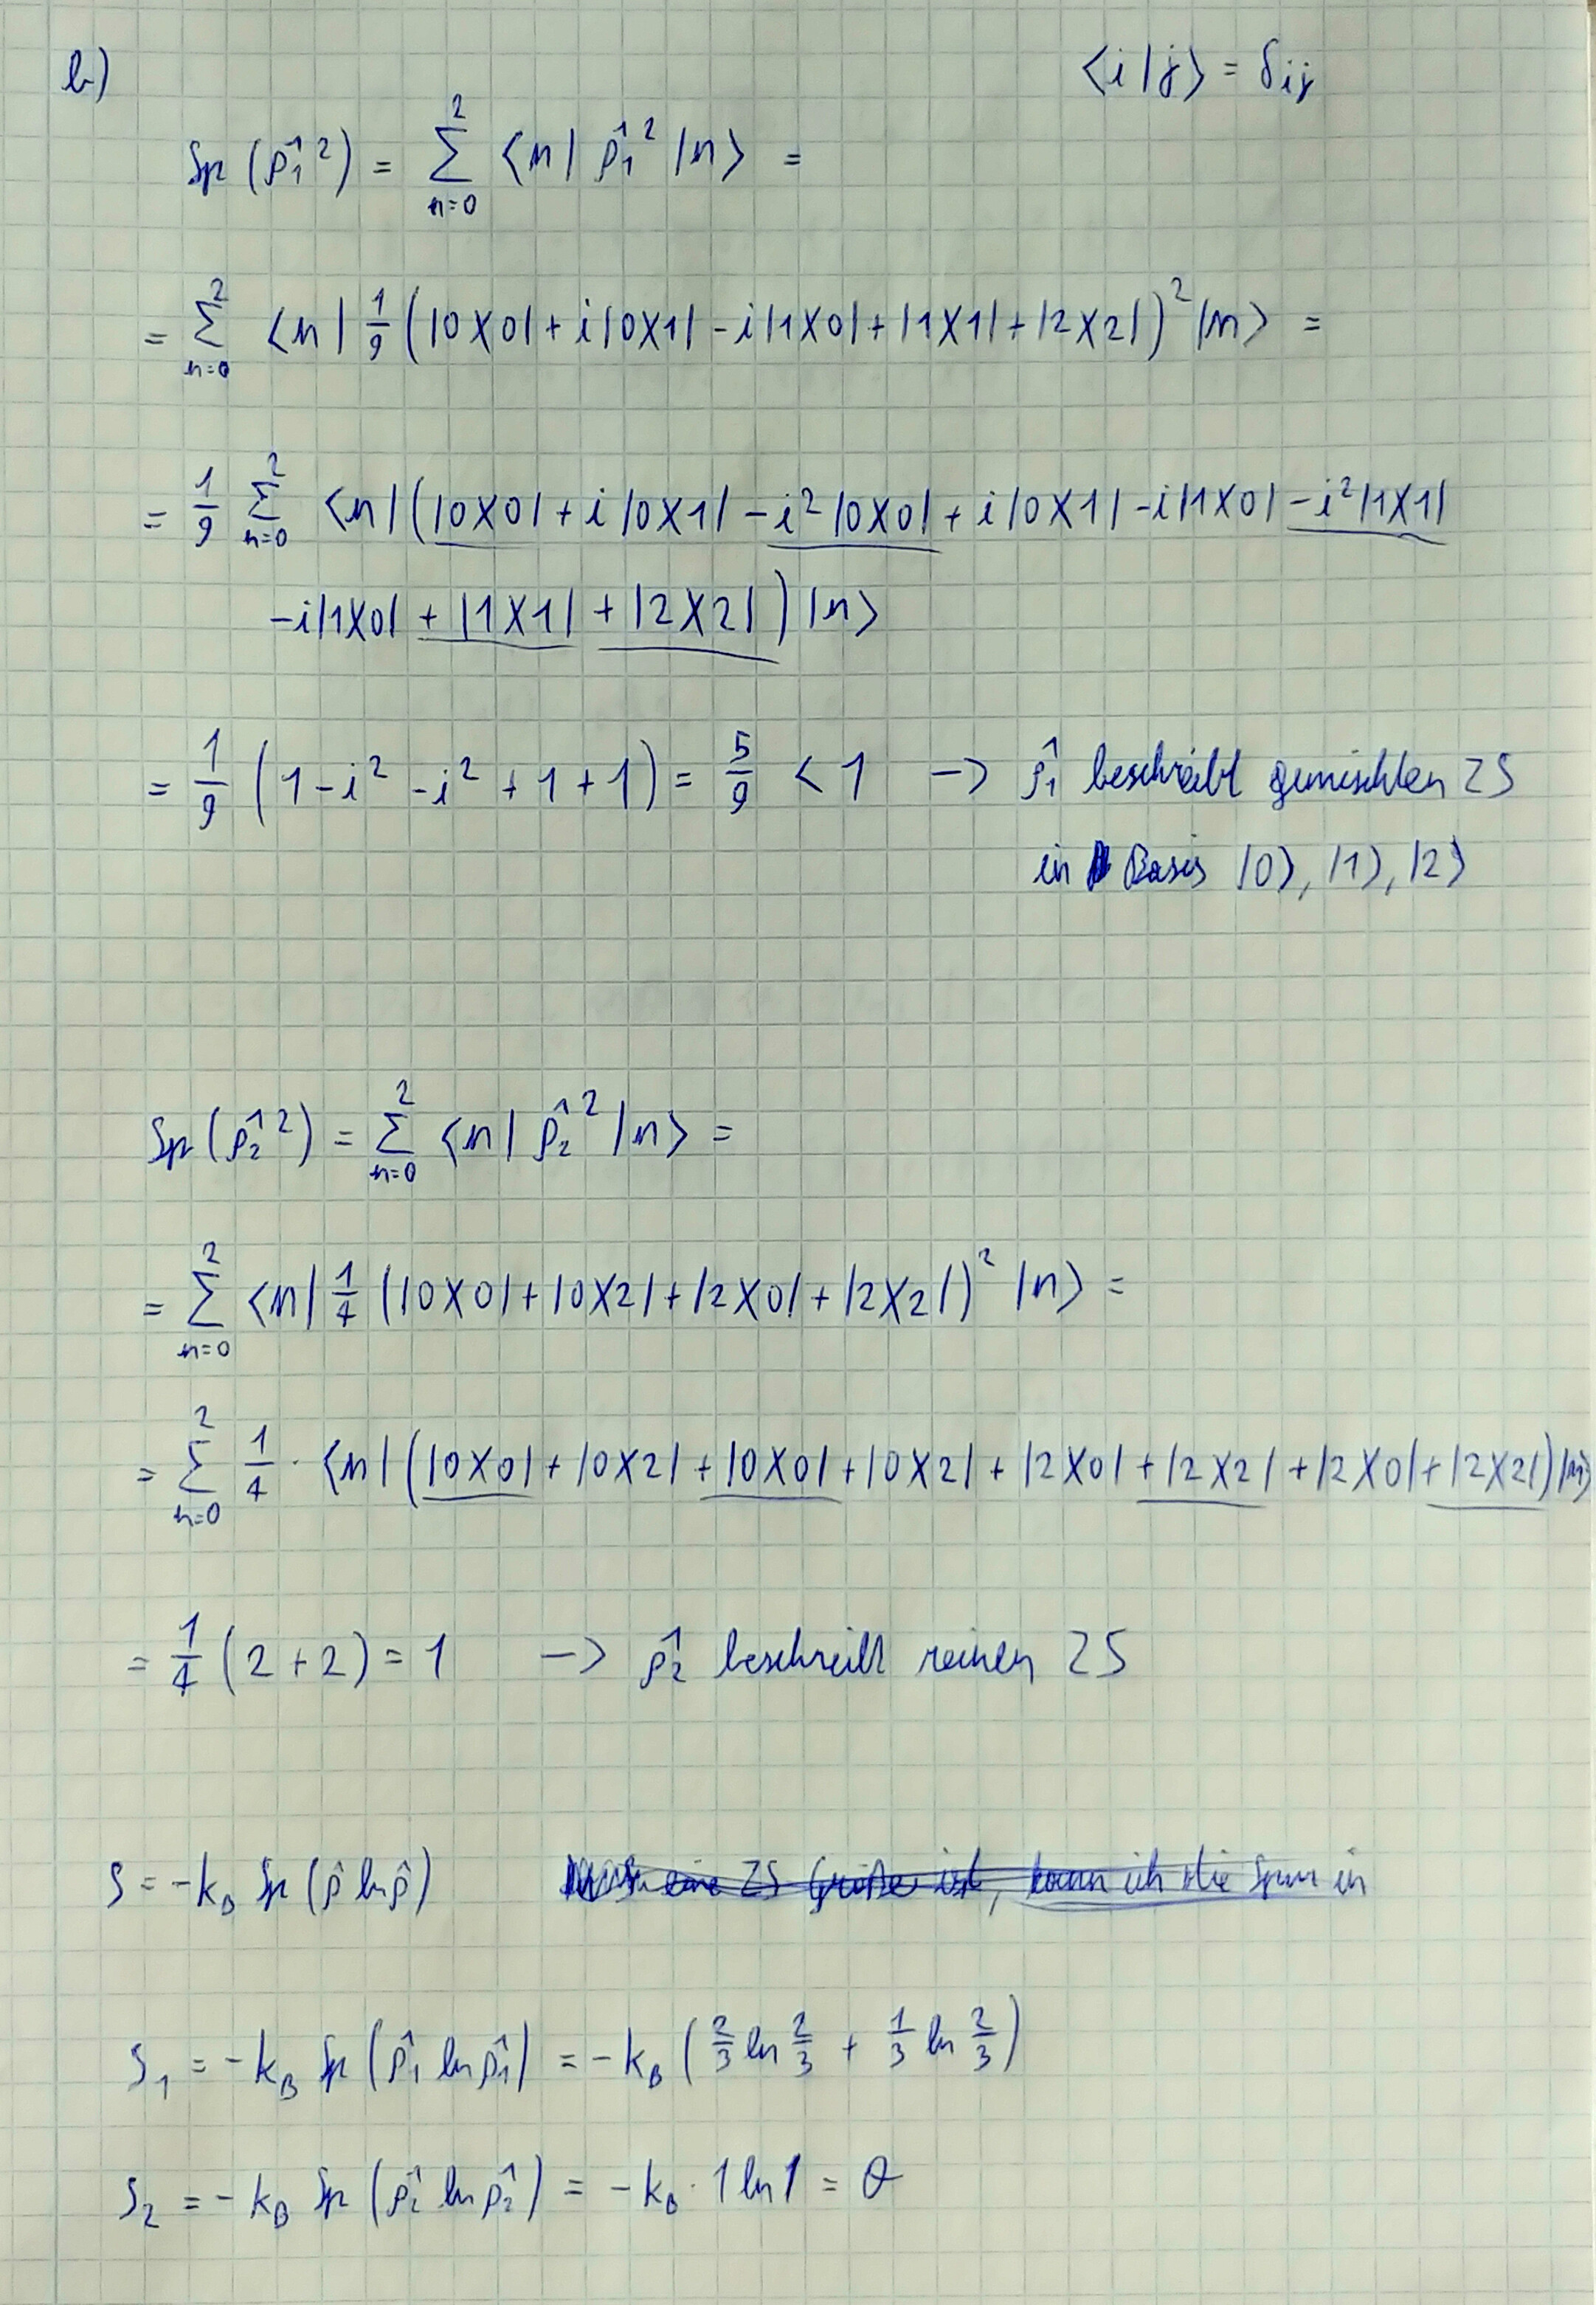 b)
⟨i|j⟩ = δij
Sp (ρ̂₁²) = Σ_{n=0}^{2} ⟨n| ρ̂₁² |n⟩ =
= Σ_{n=0}^{2} ⟨n| 1/9 (|0X0| + i|0X1| - i|1X0| + |1X1| + |2X2|)² |n⟩ =
= 1/9 Σ_{n=0}^{2} ⟨n| (|0X0| + i|0X1| - i²|0X0| + i|0X1| - i|1X0| - i²|1X1|
- i|1X0| + |1X1| + |2X2|) |n⟩
= 1/9 (1 - i² - i² + 1 + 1) = 5/9 < 1 -> ρ̂₁ beschreibt gemischten ZS
in Basis |0⟩, |1⟩, |2⟩
Sp (ρ̂₂²) = Σ_{n=0}^{2} ⟨n| ρ̂₂² |n⟩ =
= Σ_{n=0}^{2} ⟨n| 1/4 (|0X0| + |0X2| + |2X0| + |2X2|)² |n⟩ =
= Σ_{n=0}^{2} 1/4 · ⟨n| (|0X0| + |0X2| + |0X0| + |0X2| + |2X0| + |2X2| + |2X0| + |2X2|) |n⟩
= 1/4 (2 + 2) = 1 -> ρ̂₂ beschreibt reinen ZS
S = -k_B Sp (ρ̂ ln ρ̂) S eine ZS Größe ist, kann ich die Spur in
S₁ = -k_B Sp (ρ̂₁ ln ρ̂₁) = -k_B (2/3 ln 2/3 + 1/3 ln 2/3)
S₂ = -k_B Sp (ρ̂₂ ln ρ̂₂) = -k_B · 1 ln 1 = 0